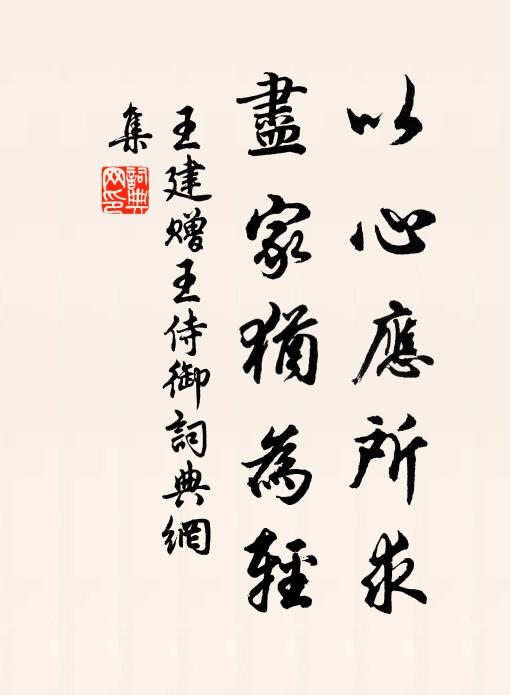 以心應所求
盡家猶為輕
王建赠王侍御詞典網
集
詞典
网印